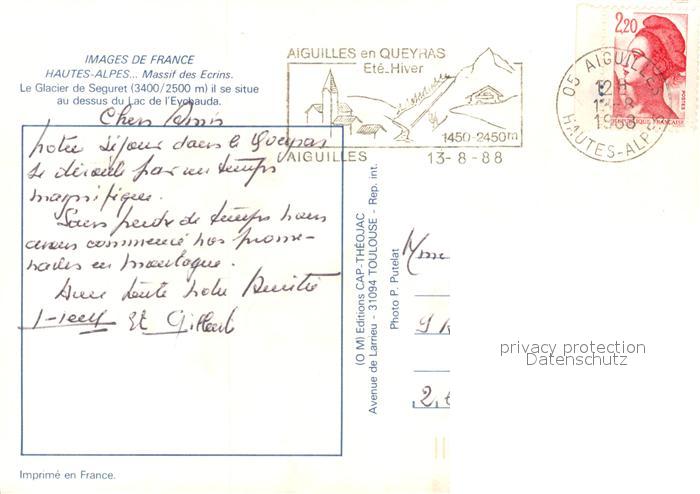 IMAGES DE FRANCE
HAUTES-ALPES... Massif des Ecrins.
Le Glacier de Seguret (3400/2500 m) il se situe
au dessus du Lac de l'Eychauda.
AIGUILLES en QUEYRAS
Eté-Hiver
1450-2450m
AIGUILLES 13-8-88
05 AIGUILLES
12 H
13-8
1988
HAUTES-ALPES
2,20
POSTES
RÉPUBLIQUE FRANÇAISE
Chers Amis
Notre séjour dans le Queyras
se déroule par un temps
magnifique.
Sans perdre de temps nous
avons commencé nos prome-
nades en montagne.
Avec toute notre Amitié
et Gilbert
(O M) Editions CAP-THÉOJAC
Avenue de Larrieu - 31094 TOULOUSE - Rep. int.
Photo P. Putelat
Mme
9
2
privacy protection
Datenschutz
Imprimé en France.